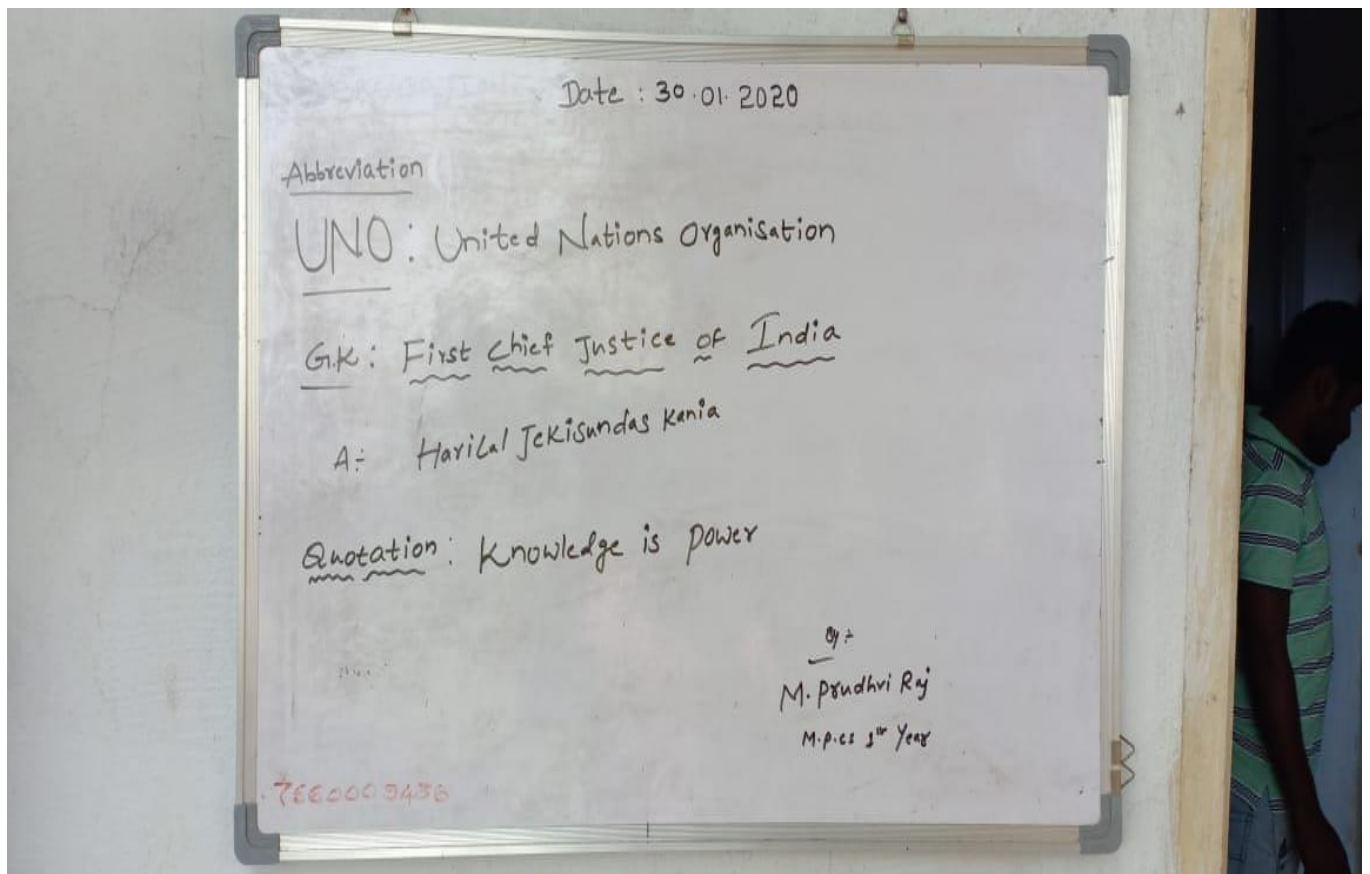 Date : 30.01.2020
Abbreviation
UNO : United Nations Organisation
G.K : First Chief Justice of India
A:- Harilal Jekisundas Kania
Quotation : Knowledge is power
By :-
M. Prudhvi Raj
M.p.cs Year